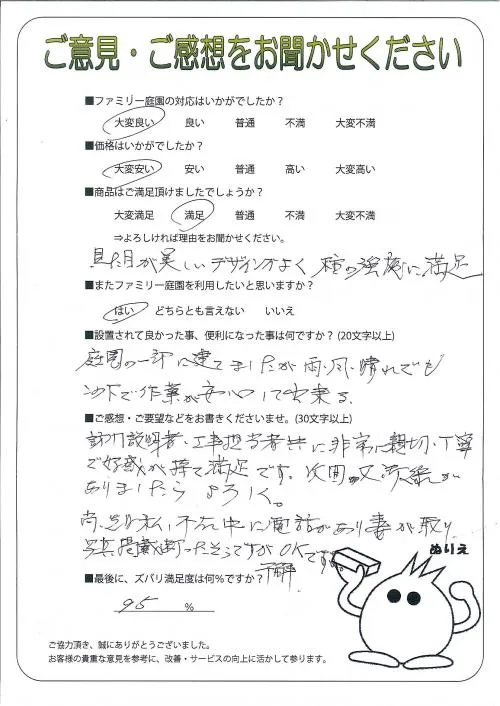 ご意見・ご感想をお聞かせください
■ファミリー庭園の対応はいかがでしたか？
大変良い 良い 普通 不満 大変不満
■価格はいかがでしたか？
大変安い 安い 普通 高い 大変高い
■商品はご満足頂けましたでしょうか？
大変満足 満足 普通 不満 大変不満
⇒よろしければ理由をお聞かせください。
見た目が美しいデザインがよく 強度に満足
■またファミリー庭園を利用したいと思いますか？
はい どちらとも言えない いいえ
■設置されて良かった事、便利になった事は何ですか？(20文字以上)
庭園の一部に建てましたが雨、風、晴れでも
下で作業が安心して出来る。
■ご感想・ご要望などをお書きくださいませ。(30文字以上)
説明者・工事担当者共に非常に親切、丁寧
で好感が持て満足です。次回又 が
ありましたら よろしく。
尚、 私、不在中に電話があり妻が取り
写真掲載断ったそうですがOKです。
ぬりえ
■最後に、ズバリ満足度は何％ですか？
95 ％
ご協力頂き、誠にありがとうございました。
お客様の貴重な意見を参考に、改善・サービスの向上に活かして参ります。